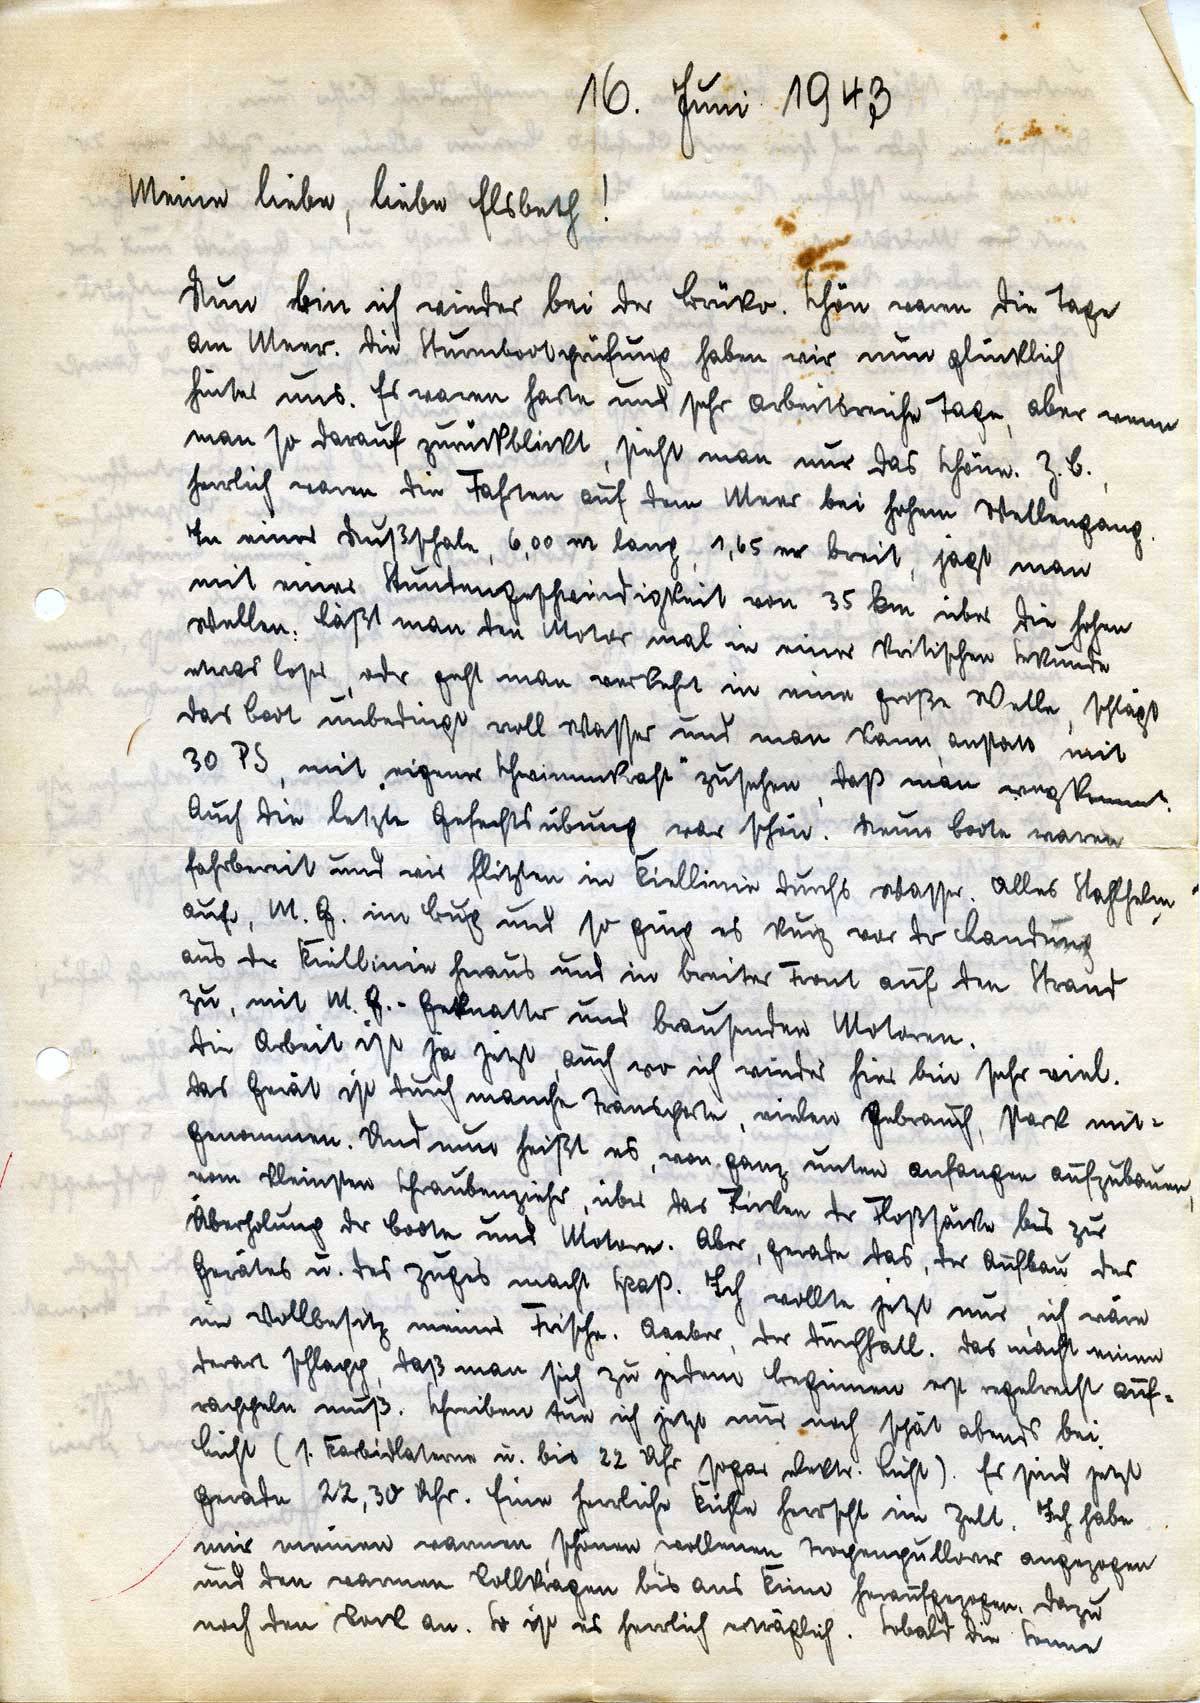 16. Juni 1943
Meine liebe, liebe Elsbeth!
Nun bin ich wieder bei der Brüko. Schön waren die Tage
am Meer. Die Sturmbootprüfung haben wir nun glücklich
hinter uns. Es waren harte und sehr arbeitsreiche Tage, aber wenn
man so darauf zurückblickt, sieht man nur das Schöne. Z.B.,
herrlich waren die Fahrten auf dem Meer bei hohem Wellengang.
In einer Nußschale, 6,00 m lang, 1,65 m breit, jagt man
mit einer Stundengeschwindigkeit von 35 km über die hohen
Wellen. Läßt man den Motor mal in einer kritischen Sekunde
etwas lose, oder geht man verkehrt in eine große Welle, schlägt
das Boot unbedingt voll Wasser und man kann, anstatt mit
30 PS, mit eigener Schwimmkraft" zusehen, daß man wegkommt.
Auch die letzte Gefechtsübung war schön. Neun Boote waren
fahrbereit und wir flitzten in Kiellinie durchs Wasser. Alles Stahlhelm
auf, M.G. im Bug und so ging es kurz vor der Landung
aus der Kiellinie heraus und in breiter Front auf den Strand
zu, mit M.G.-Geknatter und brausenden Motoren.
Die Arbeit ist ja jetzt, auch wo ich wieder hier bin sehr viel.
Das Gerät ist durch manche Transporte, vielen Gebrauch, stark mit=
genommen. Und nun heißt es, von ganz unten anfangen aufzubauen,
vom kleinsten Schraubenzieher, über das Flicken der Floßsäcke bis zur
Überholung der Boote und Motore. Aber, gerade das, der Aufbau des
Gerätes u. des Zuges macht Spaß. Ich wollte jetzt nur, ich wäre
im Vollbesitz meiner Frische. Aaber, der Durchfall. Das macht einen
derart schlapp, daß man sich zu jedem Beginnen erst regelrecht auf=
rappeln muß. Schreiben tue ich jetzt nur noch spät abends bei
Licht (s. Karbidlaterne u. bis 22 Uhr sogar elektr. Licht). Es sind jetzt
gerade 22,30 Uhr. Eine herrliche Kühle herrscht im Zelt. Ich habe
mir meinen warmen, schönen wollenen Tropenpullover angezogen
und den warmen Rollkragen bis ans Kinn heraufgezogen. Dazu
noch den Rock an. So ist es herrlich erträglich. Sobald die Sonne